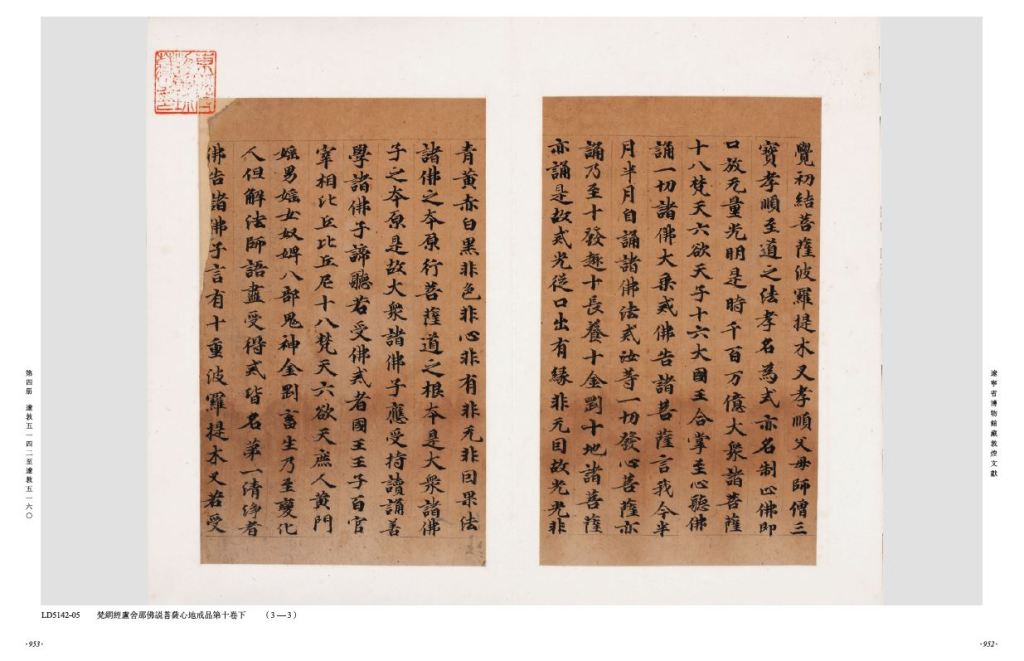 覺初結菩薩波羅提木叉孝順父母師僧三
寳孝順至道之法孝名為戒亦名制止佛即
口放无量光明是時千百万億大衆諸菩薩
十八梵天六欲天子十六大國王合掌至心聽佛
誦一切諸佛大乗戒佛告諸菩薩言我今半
月半月自誦諸佛法戒汝等一切發心菩薩亦
誦乃至十發趣十長養十金剛十地諸菩薩
亦誦是故戒光從口出有緣非无因故光光非
青黄赤白黒非色非心非有非无非因果法
諸佛之夲原行菩薩道之根夲是大衆諸佛
子之夲原是故大衆諸佛子應受持讀誦善
學諸佛子諦聽若受佛戒者國王王子百官
宰相比丘比丘尼十八梵天六欲天庶人黄門
婬男婬女奴婢八部鬼神金剛畜生乃至變化
人但解法師語盡受得戒皆名第一清浄者
佛告諸佛子言有十重波羅提木叉若受
遼寧省博物館藏敦煌文獻
第四册　遼敦五一四二至遼敦五一六〇
LD5142-05　梵網經盧舍那佛説菩薩心地戒品第十卷下　（3—3）
·953·
·952·